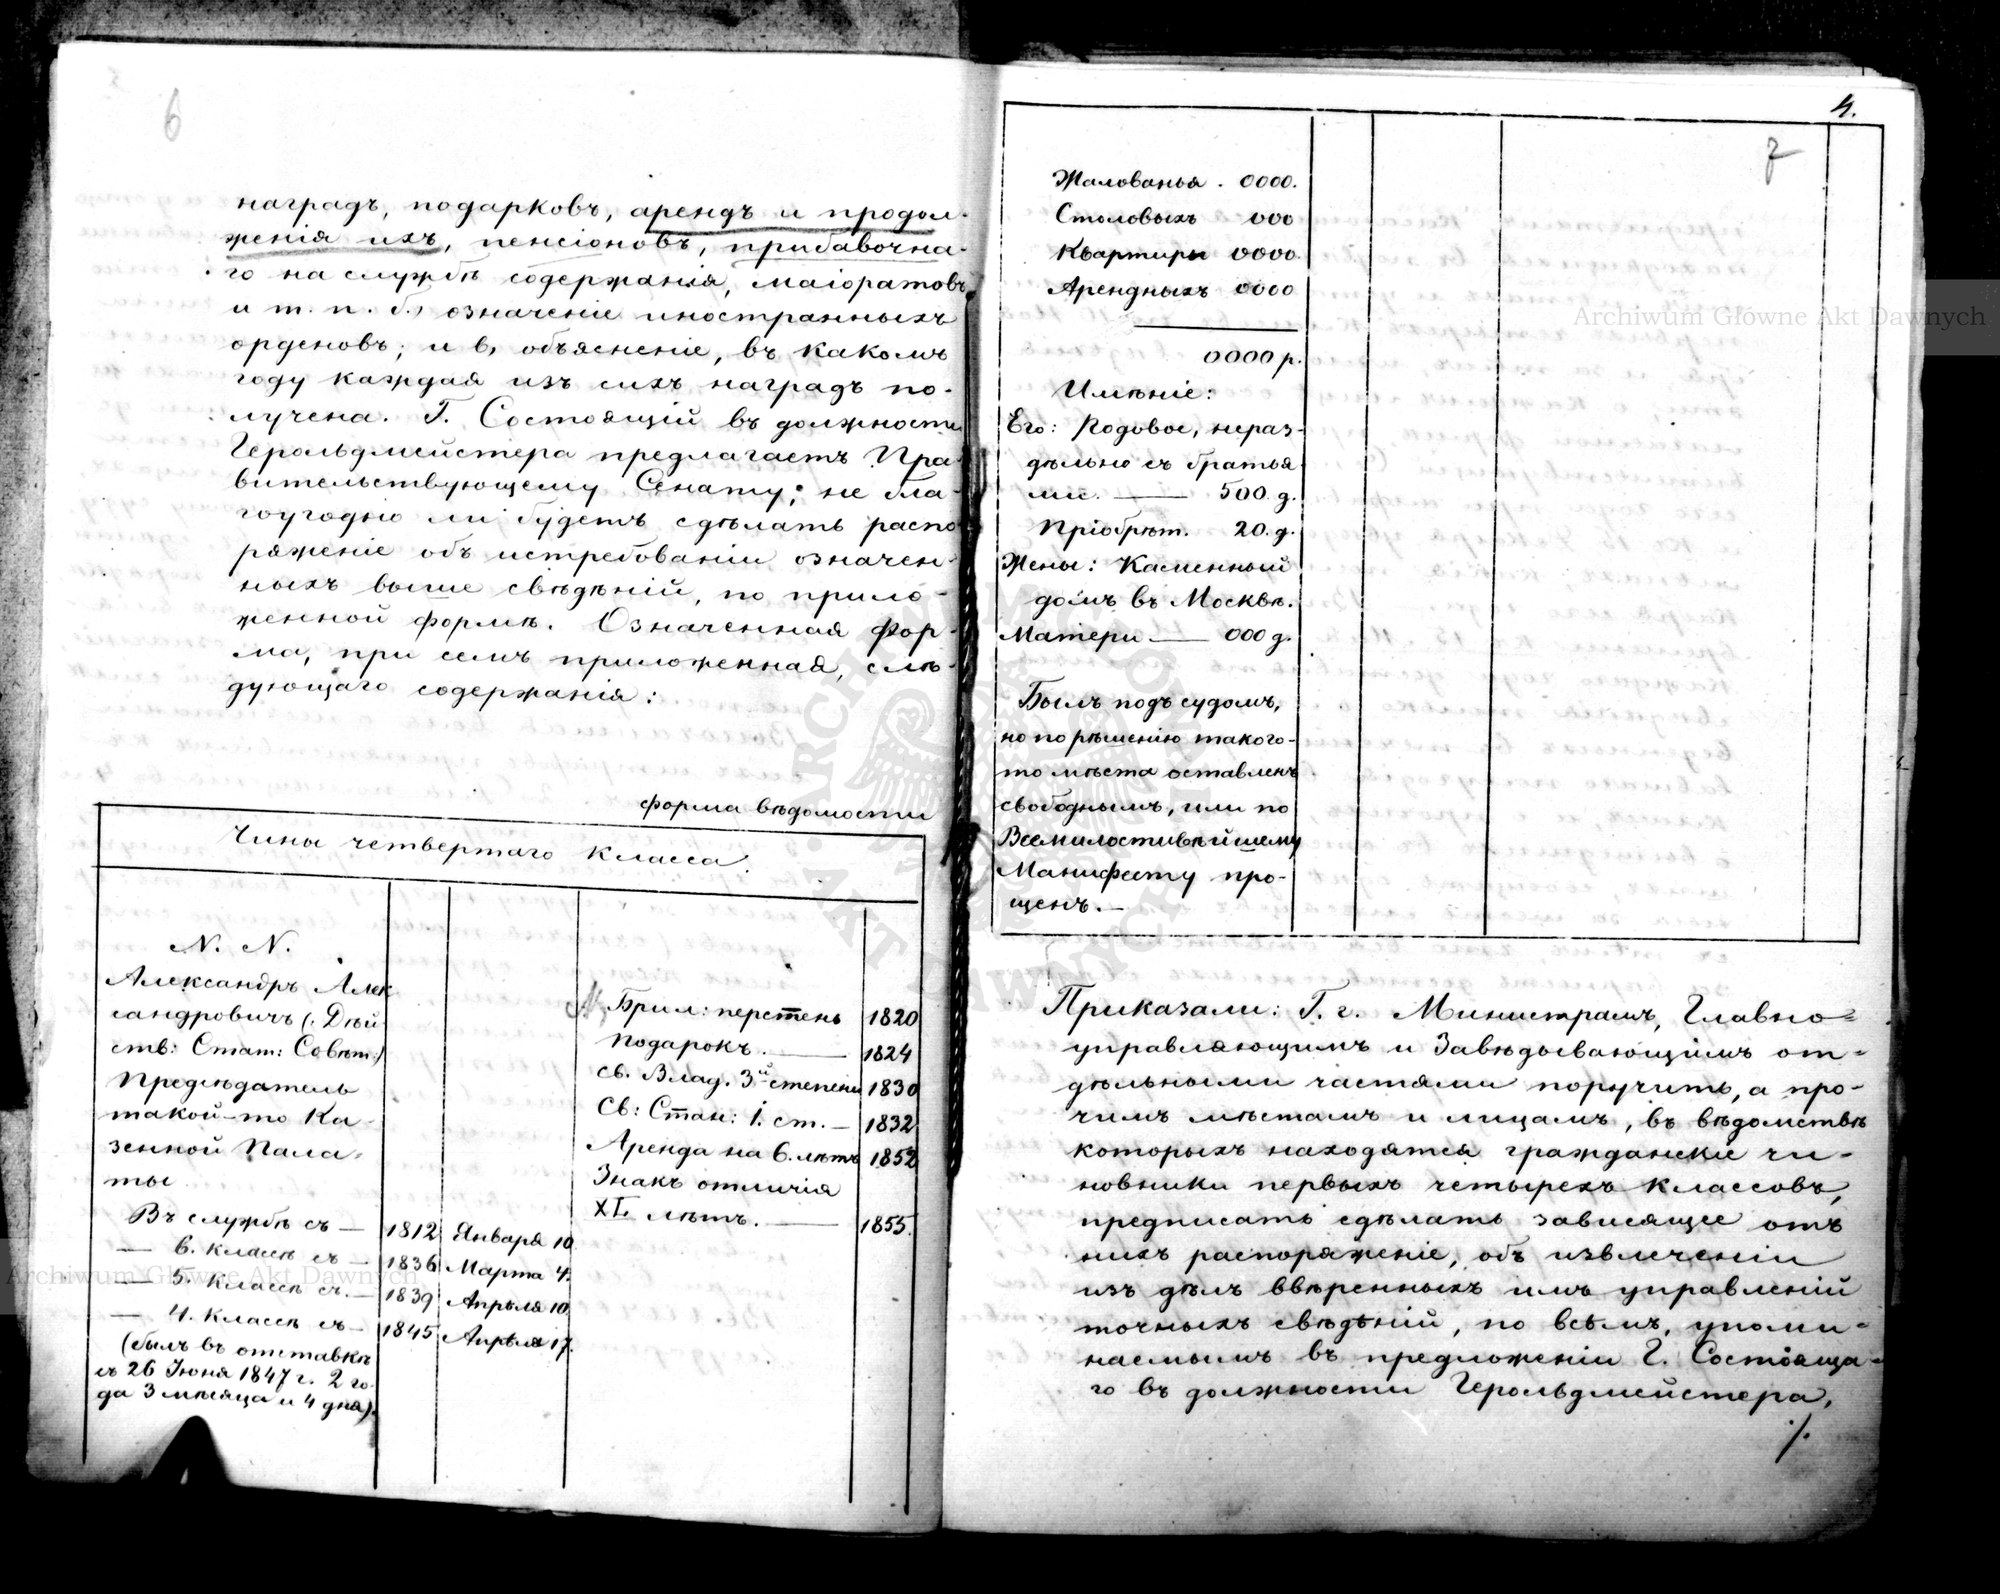 6
наградъ, подарковъ, арендъ и продол-
женія ихъ, пенсіоновъ, прибавочна-
го на службѣ содержанія, маіоратовъ
и т. п. б, означеніе иностранныхъ
орденовъ; и в, объясненіе, въ какомъ
году каждая изъ сихъ наградъ по-
лучена. Г. Состоящій въ должности
Герольдмейстера предлагаетъ Пра-
вительствующему Сенату; не бла-
гоугодно ли будетъ сдѣлать распо-
ряженіе объ истребованіи означен-
ныхъ выше свѣдѣній, по прило-
женной формѣ. Означенная фор-
ма, при семъ приложенная, слѣ-
дующаго содержанія:
форма вѣдомости
Чины четвертаго класса.
N. N.
Александръ Алек
сандровичъ (. Дѣй-
ств: Стат: Совѣт:)
Предсѣдатель
такой-то Ка-
зенной Пала-
ты
Въ службѣ съ — 1812 Января 10
— 6. классѣ съ — 1836 Марта 4.
— 5. классѣ съ. — 1839 Апрѣля 10.
— 4. классѣ съ — 1845 Апрѣля 17.
(былъ въ отставкѣ
съ 26 Іюня 1847 г. 2 го-
да 3 мѣсяца и 4 дня).
Брил: перстень 1820
Подарокъ. — 1824
св. Влад. 3й степени 1830
Св: Стан: 1. ст. — 1832
Аренда на 6. лѣтъ 1852
Знакъ отличія
XL лѣтъ. — 1855.
4.
7
Жалованья . 0000.
Столовыхъ 000
Квартиры 0000.
Арендныхъ 0000
0000 р.
Имѣніе:
Его: Родовое, нераз-
дѣльно съ братья-
ми. — 500. д.
Пріобрѣт. 20. д.
Жены: Каменный
домъ въ Москвѣ.
Матери — 000 д.
Былъ подъ судомъ,
но по рѣшенію такого-
то мѣста оставленъ
свободнымъ, или по
Всемилостивѣйшему
Манифесту про-
щенъ. —
Приказали: Г. г. Министрамъ, Главно-
управляющимъ и Завѣдывающимъ от-
дѣльными частями поручить, а про-
чимъ мѣстамъ и лицамъ, въ вѣдомствѣ
которыхъ находятся гражданскіе чи-
новники первыхъ четырехъ классовъ,
предписать сдѣлать зависящее отъ
нихъ распоряженіе, объ извлеченіи
изъ дѣлъ ввѣренныхъ имъ управленій
точныхъ свѣдѣній, по всѣмъ, упоми-
наемымъ въ предложеніи Г. Состояща-
го въ должности Герольдмейстера,
./.
Archiwum Główne Akt Dawnych
Archiwum Główne Akt Dawnych